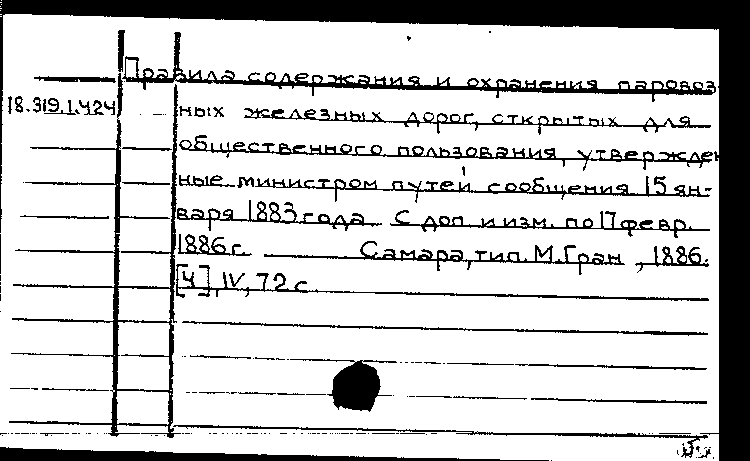 Правила содержания и охранения паровоз-
18.319.1.424 ных железных дорог, открытых для
общественного пользования, утвержден-
ные министром путей сообщения 15 ян-
варя 1883 года С доп. и изм. по 17 февр.
1886 г. Самара, тип. М. Гран, 1886.
[4], IV, 72 с.